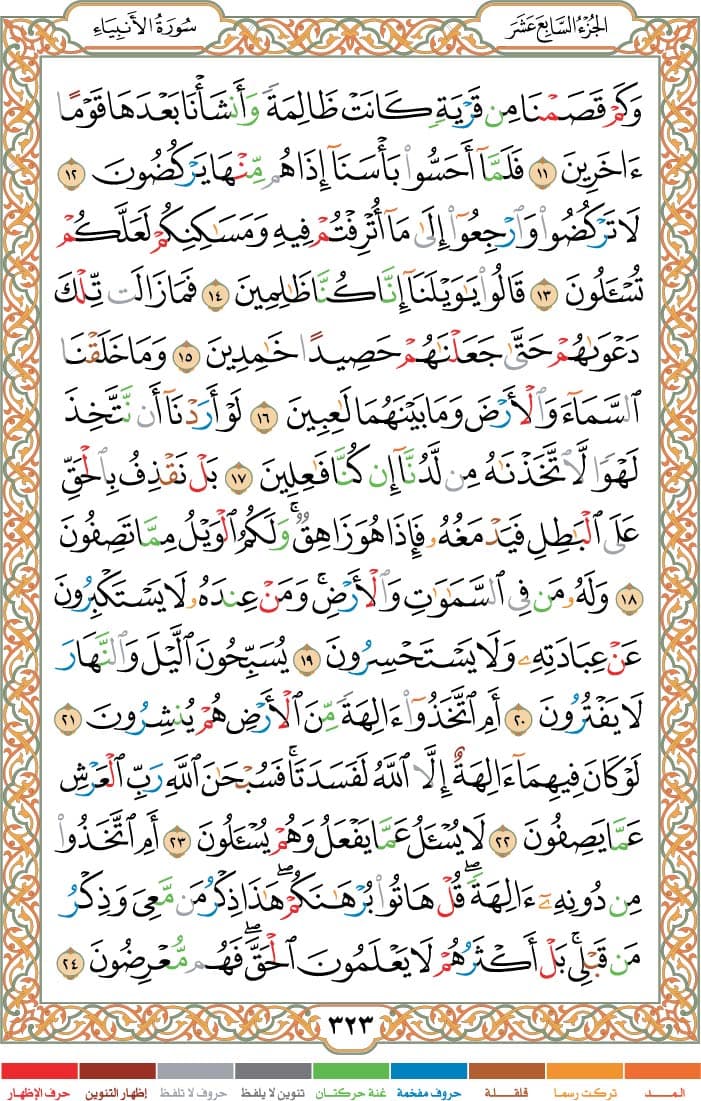 الجُزْءُ السَّابِعَ عَشَرَ
سُورَةُ الأَنبِيَاءِ
وَكَمْ قَصَمْنَا مِن قَرْيَةٍ كَانَتْ ظَالِمَةً وَأَنشَأْنَا بَعْدَهَا قَوْمًا
ءَاخَرِينَ ١١ فَلَمَّآ أَحَسُّوا۟ بَأْسَنَآ إِذَا هُم مِّنْهَا يَرْكُضُونَ ١٢
لَا تَرْكُضُوا۟ وَٱرْجِعُوٓا۟ إِلَىٰ مَآ أُتْرِفْتُمْ فِيهِ وَمَسَـٰكِنِكُمْ لَعَلَّكُمْ
تُسْـَٔلُونَ ١٣ قَالُوا۟ يَـٰوَيْلَنَآ إِنَّا كُنَّا ظَـٰلِمِينَ ١٤ فَمَا زَالَت تِّلْكَ
دَعْوَىٰهُمْ حَتَّىٰ جَعَلْنَـٰهُمْ حَصِيدًا خَـٰمِدِينَ ١٥ وَمَا خَلَقْنَا
ٱلسَّمَآءَ وَٱلْأَرْضَ وَمَا بَيْنَهُمَا لَـٰعِبِينَ ١٦ لَوْ أَرَدْنَآ أَن نَّتَّخِذَ
لَهْوًا لَّٱتَّخَذْنَـٰهُ مِن لَّدُنَّآ إِن كُنَّا فَـٰعِلِينَ ١٧ بَلْ نَقْذِفُ بِٱلْحَقِّ
عَلَى ٱلْبَـٰطِلِ فَيَدْمَغُهُۥ فَإِذَا هُوَ زَاهِقٌ ۚ وَلَكُمُ ٱلْوَيْلُ مِمَّا تَصِفُونَ
١٨ وَلَهُۥ مَن فِى ٱلسَّمَـٰوَٰتِ وَٱلْأَرْضِ ۚ وَمَنْ عِندَهُۥ لَا يَسْتَكْبِرُونَ
عَنْ عِبَادَتِهِۦ وَلَا يَسْتَحْسِرُونَ ١٩ يُسَبِّحُونَ ٱلَّيْلَ وَٱلنَّهَارَ
لَا يَفْتُرُونَ ٢٠ أَمِ ٱتَّخَذُوٓا۟ ءَالِهَةً مِّنَ ٱلْأَرْضِ هُمْ يُنشِرُونَ ٢١
لَوْ كَانَ فِيهِمَآ ءَالِهَةٌ إِلَّا ٱللَّهُ لَفَسَدَتَا ۚ فَسُبْحَـٰنَ ٱللَّهِ رَبِّ ٱلْعَرْشِ
عَمَّا يَصِفُونَ ٢٢ لَا يُسْـَٔلُ عَمَّا يَفْعَلُ وَهُمْ يُسْـَٔلُونَ ٢٣ أَمِ ٱتَّخَذُوا۟
مِن دُونِهِۦٓ ءَالِهَةً ۖ قُلْ هَاتُوا۟ بُرْهَـٰنَكُمْ ۖ هَـٰذَا ذِكْرُ مَن مَّعِىَ وَذِكْرُ
مَن قَبْلِى ۚ بَلْ أَكْثَرُهُمْ لَا يَعْلَمُونَ ٱلْحَقَّ ۖ فَهُم مُّعْرِضُونَ ٢٤
٣٢٣
المــد تركت رسما قلقلة حروف مفخمة غنة حركتان تنوين لا يلفظ حروف لا تلفظ إظهار التنوين حرف الإظهار